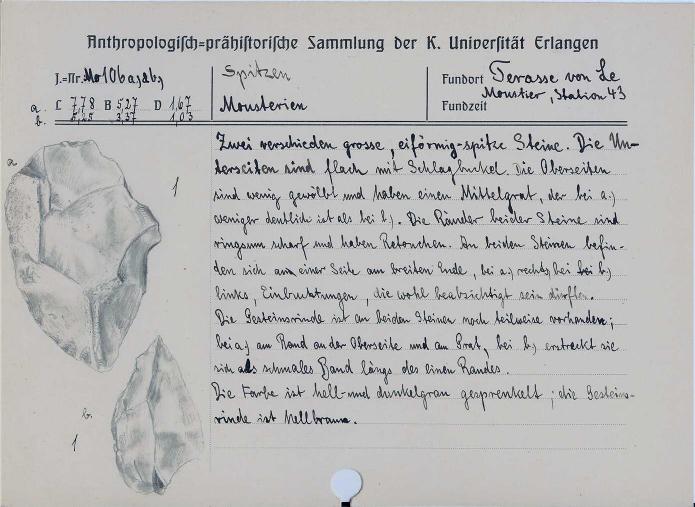 Anthropologisch=prähistorische Sammlung der K. Universität Erlangen
J.=Nr. Mo 106 a, d b,
Spitzen
Fundort Terasse von Le
Moustier, Station 43
a. L 7,78 B 5,27 D 1,67
Mousterien
Fundzeit
b. 6,25 3,37 1,03
Zwei verschieden grosse, eiförmig-spitze Steine. Die Un-
terseiten sind flach mit Schlagbuckel. Die Oberseiten
sind wenig gewölbt und haben einen Mittelgrat, der bei a.)
weniger deutlich ist als bei b). Die Ränder beider Steine sind
ringsum scharf und haben Retouchen. An beiden Steinen befin-
den sich an einer Seite am breiten Ende, bei a) rechts, bei b)
links, Einbuchtungen, die wohl beabsichtigt sein dürften.
Die Gesteinsrinde ist an beiden Steinen noch teilweise vorhanden;
bei a) am Rand an der Oberseite und am Grat, bei b) erstreckt sie
sich als schmales Band längs des einen Randes.
Die Farbe ist hell- und dunkelgrau gesprenkelt; die Gesteins-
rinde ist hellbraun.
a
1
b.
1